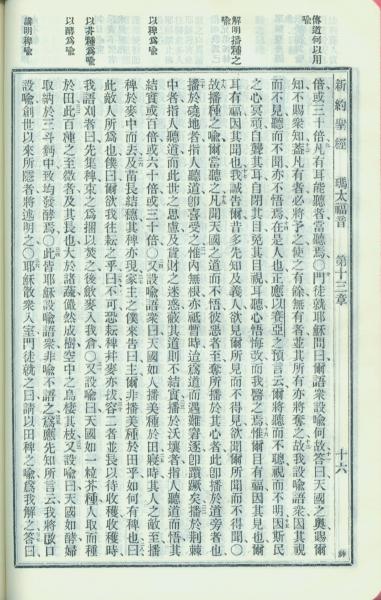 傳道何以用
喩
解明播種之
喩
以稗為喩
以芥種為喩
以酵為喩
講明稗喩
新約聖經 瑪太福音 第十三章 十六
倍或三十倍凡有耳能聽者當聽焉〇門徒就耶穌問曰爾語衆設喩何故答曰天國之奧賜爾
知不賜衆知蓋凡有者必將予之使之有餘無有者並其所有亦將奪之故我設喩語衆因其視
而不見聽而不聞亦不悟焉在是人也正應以賽亞之預言云爾將聽而不聰視而不明因斯民
之心冥頑自聾其耳自閉其目免其目視耳聽心悟悔改而我醫之焉惟爾目有福因其見也爾
耳有福因其聞也我誠告爾昔多先知及義人欲見爾所見而不得見欲聞爾所聞而不得聞〇
故播種之喩爾當聽之凡聞天國之道而不悟彼惡者至奪所播於其心者此卽播於道旁者也
播於磽地者指人聽道卽喜受之惟內無根亦祗暫時迨為道而遇難窘遂卽躓蹶矣播於荊棘
中者指人聽道而此世之思慮及貨財之迷惑蔽其道則不結實播於沃壤者指人聽道而悟其
結實或百倍或六十倍或三十倍〇又設喩語衆曰天國如人播美種於田寢時其人之敵至播
稗於麥中而去及苗長結穗其稗亦現家主之僕來告曰主爾非播美種於田乎如何有稗也曰
此敵人所為也僕曰爾欲我往耘之乎曰不可恐耘稗幷麥亦拔容二者並長以待收穫收穫時
我語刈者曰先集稗束之為捆以焚之後斂麥入我倉〇又設喩曰天國如一粒芥種人取而種
於田此百種之至微者及其長也大於諸蔬儼然成樹空中之鳥棲其枝〇又設喩曰天國如酵婦
取納於三斗麵中致均發酵焉〇此皆耶穌設喩語衆非喩不語之為應先知所言云我將啟口
設喩創世以來所隱者將述明之〇耶穌散衆入室門徒就之曰請以田稗之喩為我解之答曰